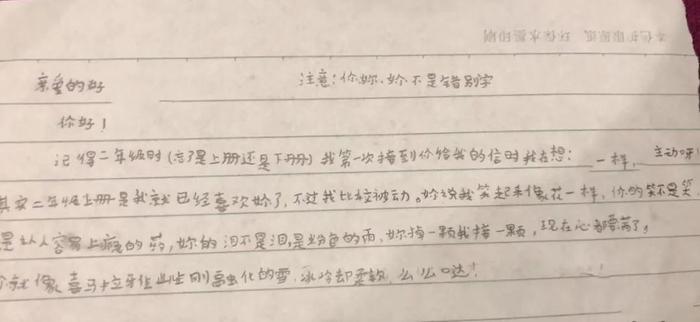 亲爱的妤
注意:你妳、妳不是错别字
你好!
记得二年级时(忘了是上册还是下册)我第一次接到你给我的信时我在想: 一样,主动呀!
其实二年级上册是我就已经喜欢妳了,不过我比较被动。妳说我笑起来像花一样,你的笑不是笑
是让人容易上瘾的药,妳的泪不是泪,是粉色的雨,妳掉一颗我接一颗,现在心都要满了,
就像喜马拉雅山上刚融化的雪,冰冷却柔软,么么哒!